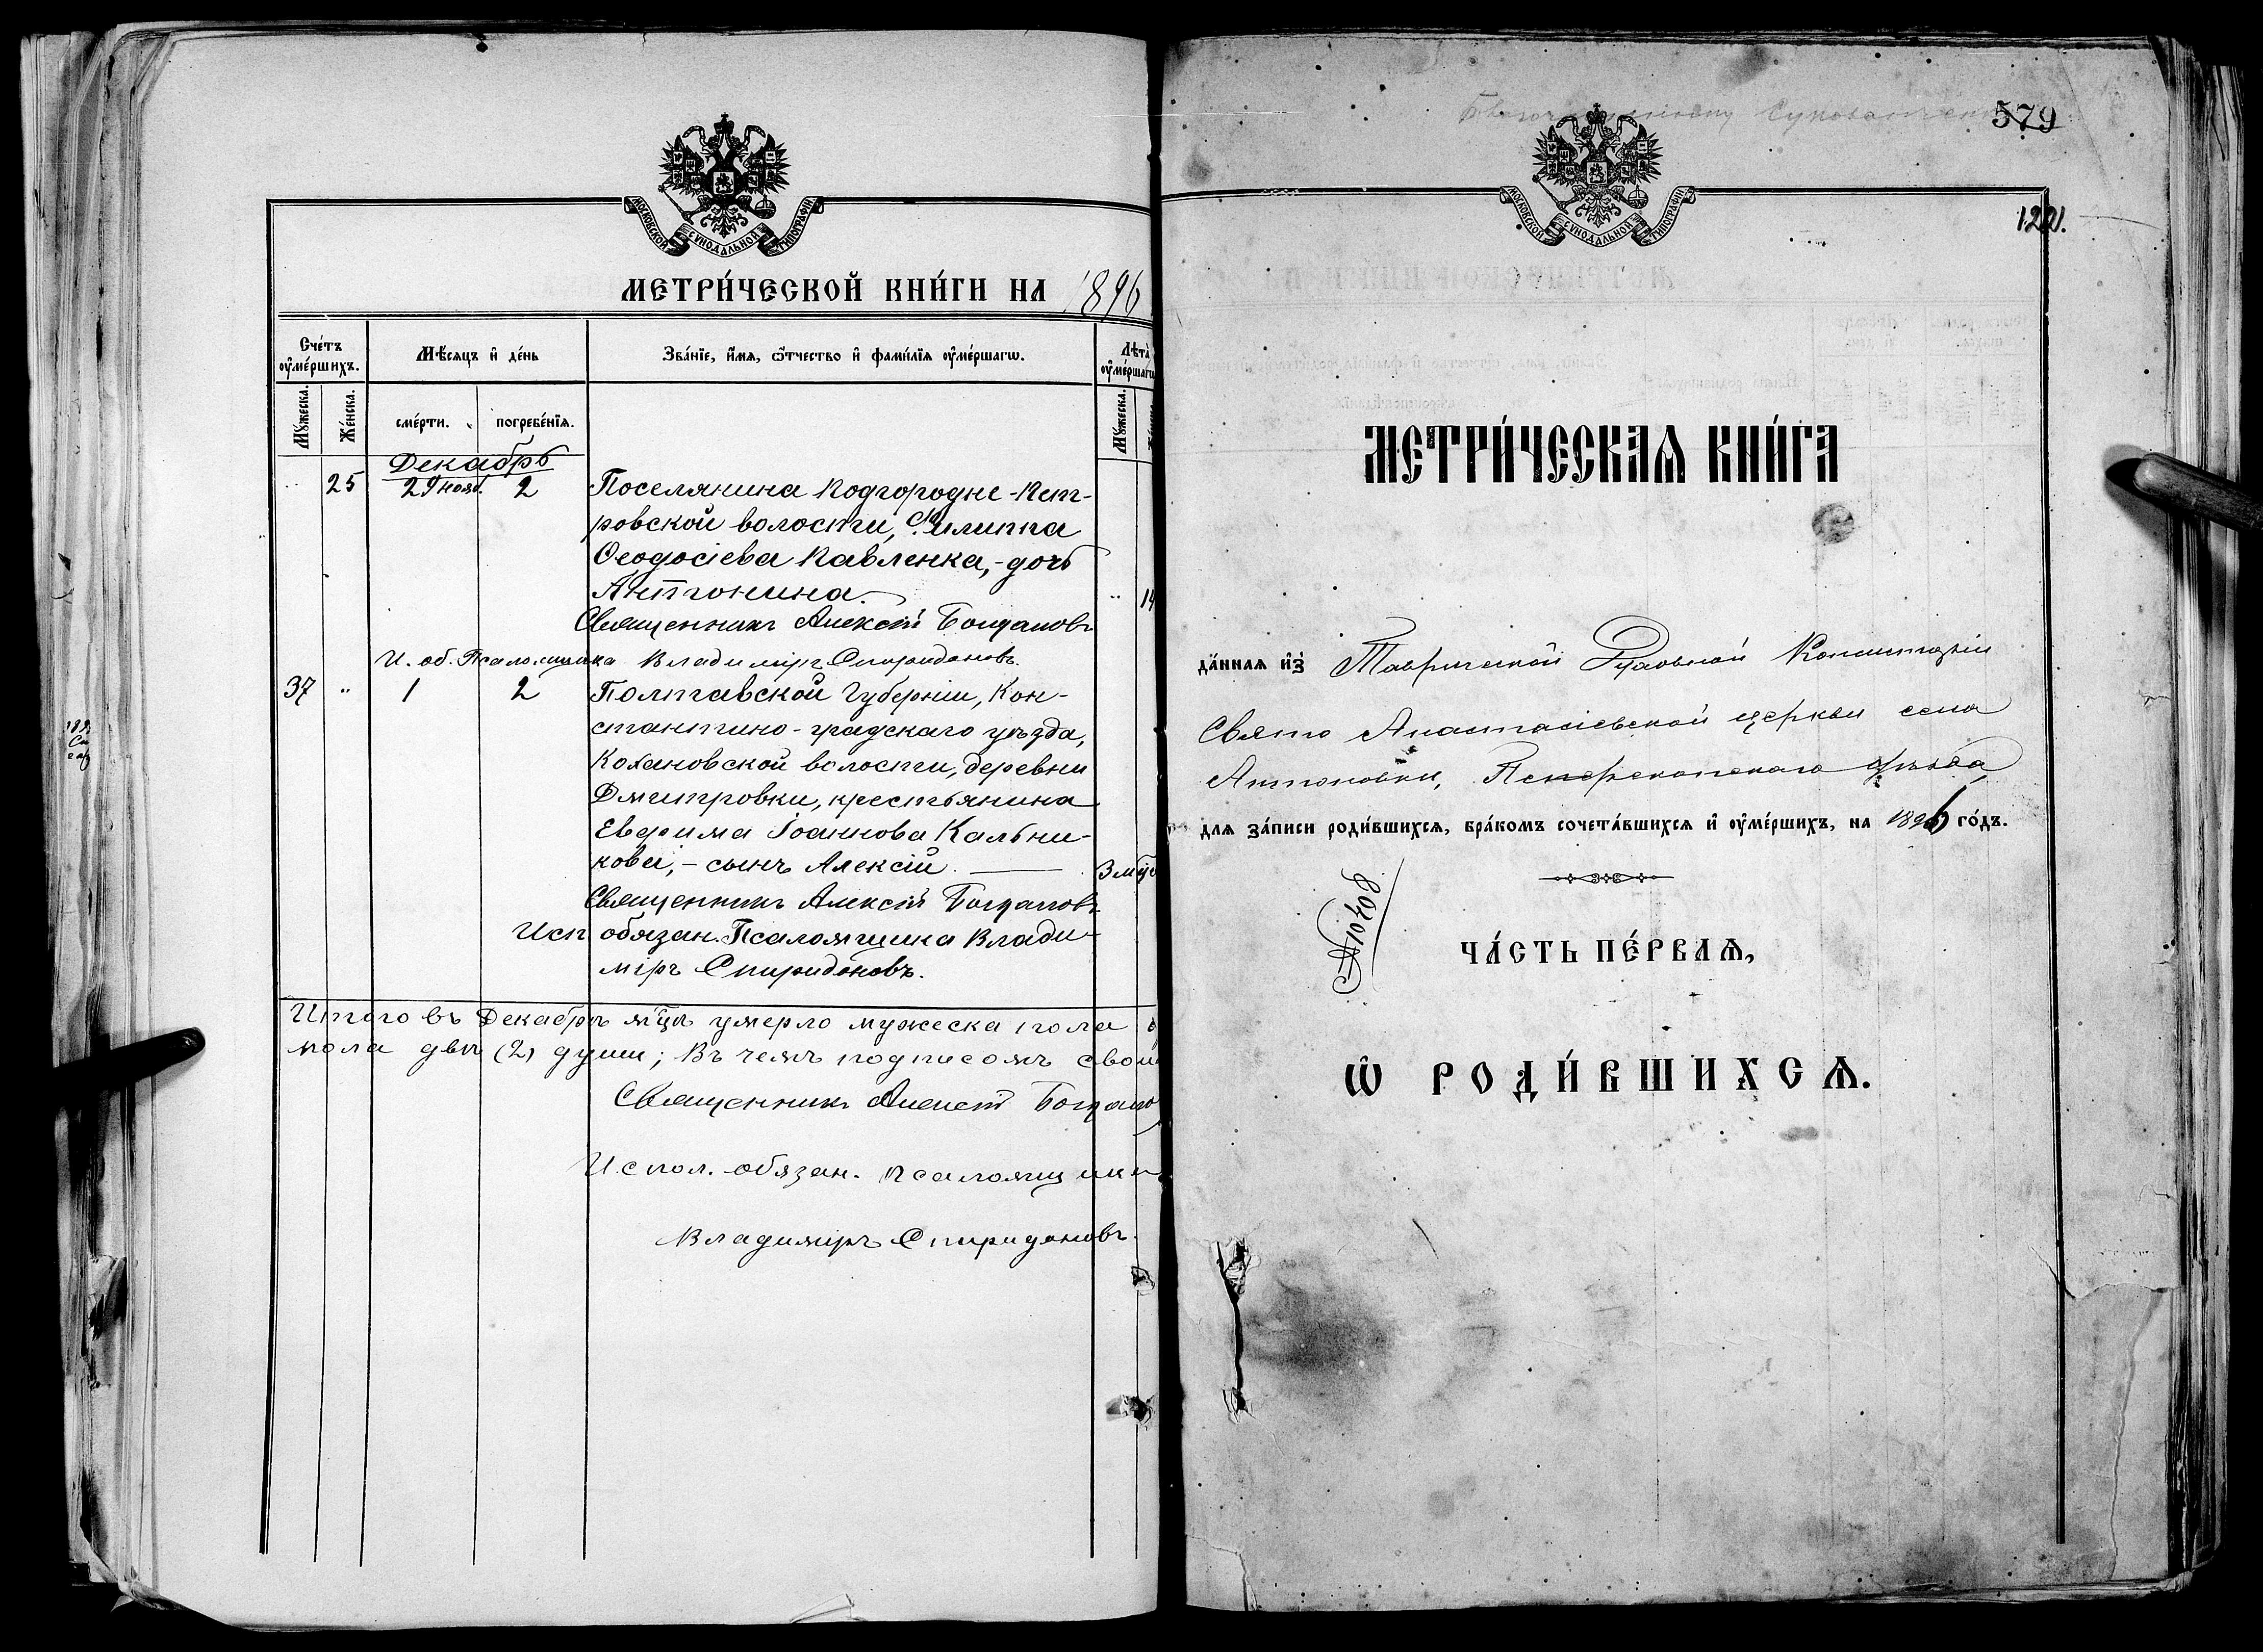 МОСКОВСКОЙ СУНОДАЛЬНОЙ ТИПОГРАФІИ
МЕТРИ́ЧЕСКОЙ КНИ́ГИ НА 1896
Сче́тъ оу҆ме́ршихъ.
Мѣ́сяцъ и҆ де́нь
Зва́нїе, и҆́мя, ѻ҆́тчество и҆ фами́лїя оу҆ме́ршагѡ.
Лѣта̀ оу҆ме́ршаг
Му́жеска.
Же́нска.
сме́рти.
погребе́нїя.
Му́жеска.
Декабрь
25 29 нояб. 2 Поселянина Подгородне-Пет-
ровской волости, Филиппа
Ѳеодосіева Павленка, - дочь
Антонина. " 14
Священникъ Алексій Богдановъ
И. об. Псаломщика Владиміръ Спиридоновъ.
37 " 1 2 Полтавской Губерніи, Кон-
стантино-градскаго уѣзда,
Кохановской волости, деревни
Дмитровки, крестьянина
Евфима Іоаннова Кальни-
кова, - сынъ Алексій 3 мѣ
Священникъ Алексій Богдановъ
Исп. обязан. Псаломщика Влади-
міръ Спиридоновъ.
Итого въ Декабрѣ м҃цѣ умерло мужеска пола
пола двѣ (2) души; Въ чемъ подписомъ свои
Священникъ Алексій Богдано
Испол. обязан. Псаломщика
Владиміръ Спиридоновъ.
579
МОСКОВСКОЙ СУНОДАЛЬНОЙ ТИПОГРАФІИ
МЕТРИ́ЧЕСКАЯ КНИ́ГА
да́нная и҆з̾ Таврической Духовной Консисторіи
Свято Анастасіевской церкви села
Антоновки, Перекопскаго уѣзда
для за́писи роди́вшихся, бра́комъ сочета́вшихся и҆ оу҆ме́ршихъ, на 1896 го́дъ.
ЧА́СТЬ ПЕ́РВАЯ,
Ѡ҆ РОДИ́ВШИХСЯ.